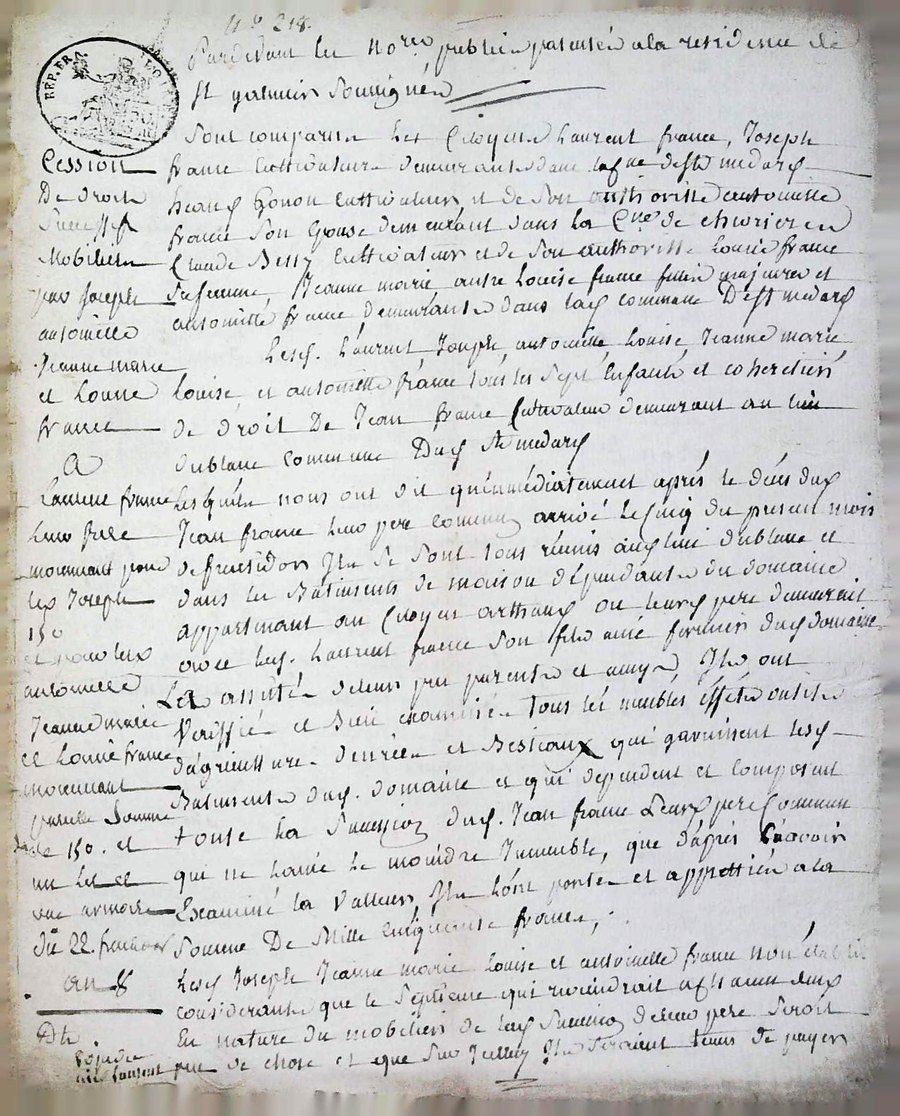 N° 218.
REP. FRA.
Pardevant les Nores publics patentés a la residence de
St germain
Sont comparus les Citoyens Laurent france, Joseph
france Cultivateurs demeurants dans la Cne de St medard
Gonon Cultivateur et de Son authorité antoinette
france Son Epouse demeurant dans la Cne de chevrieres
Claude Cultivateur et de Son authorité Louise france
Sa femme, Jeanne marie autre Louise france filles majeures et
antoinette france demeurants dans lad commune De St medard
Lesd. Laurent, Joseph, antoinette Louise Jeanne marie
Louise, et antoinette france tous les Sept Enfants et coheritiers
de droit De Jean france Cultivateur demeurant au lieu
Dublanc commune Dud St medard
Lesquels nous ont dit qu'immédiatement après le décès dud
Jean france leur pere commun arrivé le cinq du present mois
de frimaire Ils Se Sont tous réunis aud lieu Dublanc et
dans les Batiments de maison dépendants du domaine
appartenant au Citoyen arthaud ou leurd pere demeurait
avec led. Laurent france Son fils ainé fermier dud domaine
La assistés de leurs parents et amys Ils ont
Veriffié et Bien examiné tous les meubles éffets outils
d'agriculture Denrées et Bestiaux qui garnissent lesd
Batiments dud. domaine et qui dépendent et composent
toute la Succession dud. Jean france Leurd pere Commun
qui ne laisse le moindre Immeuble, que d'après avoir
Examiné la Valleur Ils l'ont portée et apprétiée a la
Somme De Mille cinquante francs,
Lesd Joseph Jeanne marie Louise et antoinette france
considerant que le Septieme qui reviendrait a chacun deux
En nature du mobilier de lad Succession de leur pere Seroit
peu de chose et que Sur Ils Seraient tenus de payer
Cession
De droits
Successifs
Mobiliers
par Joseph
antoinette
Jeanne marie
et Louise
france
A
Laurent france
leur frere
moyennant pour
led Joseph
150
et pour les
antoinette
Jeanne marie
et Louise france
moyennant
pareille Somme
de 150. et
un lit et
une armoire
du 22. frimaire
an 8
Expedié
aud Laurent